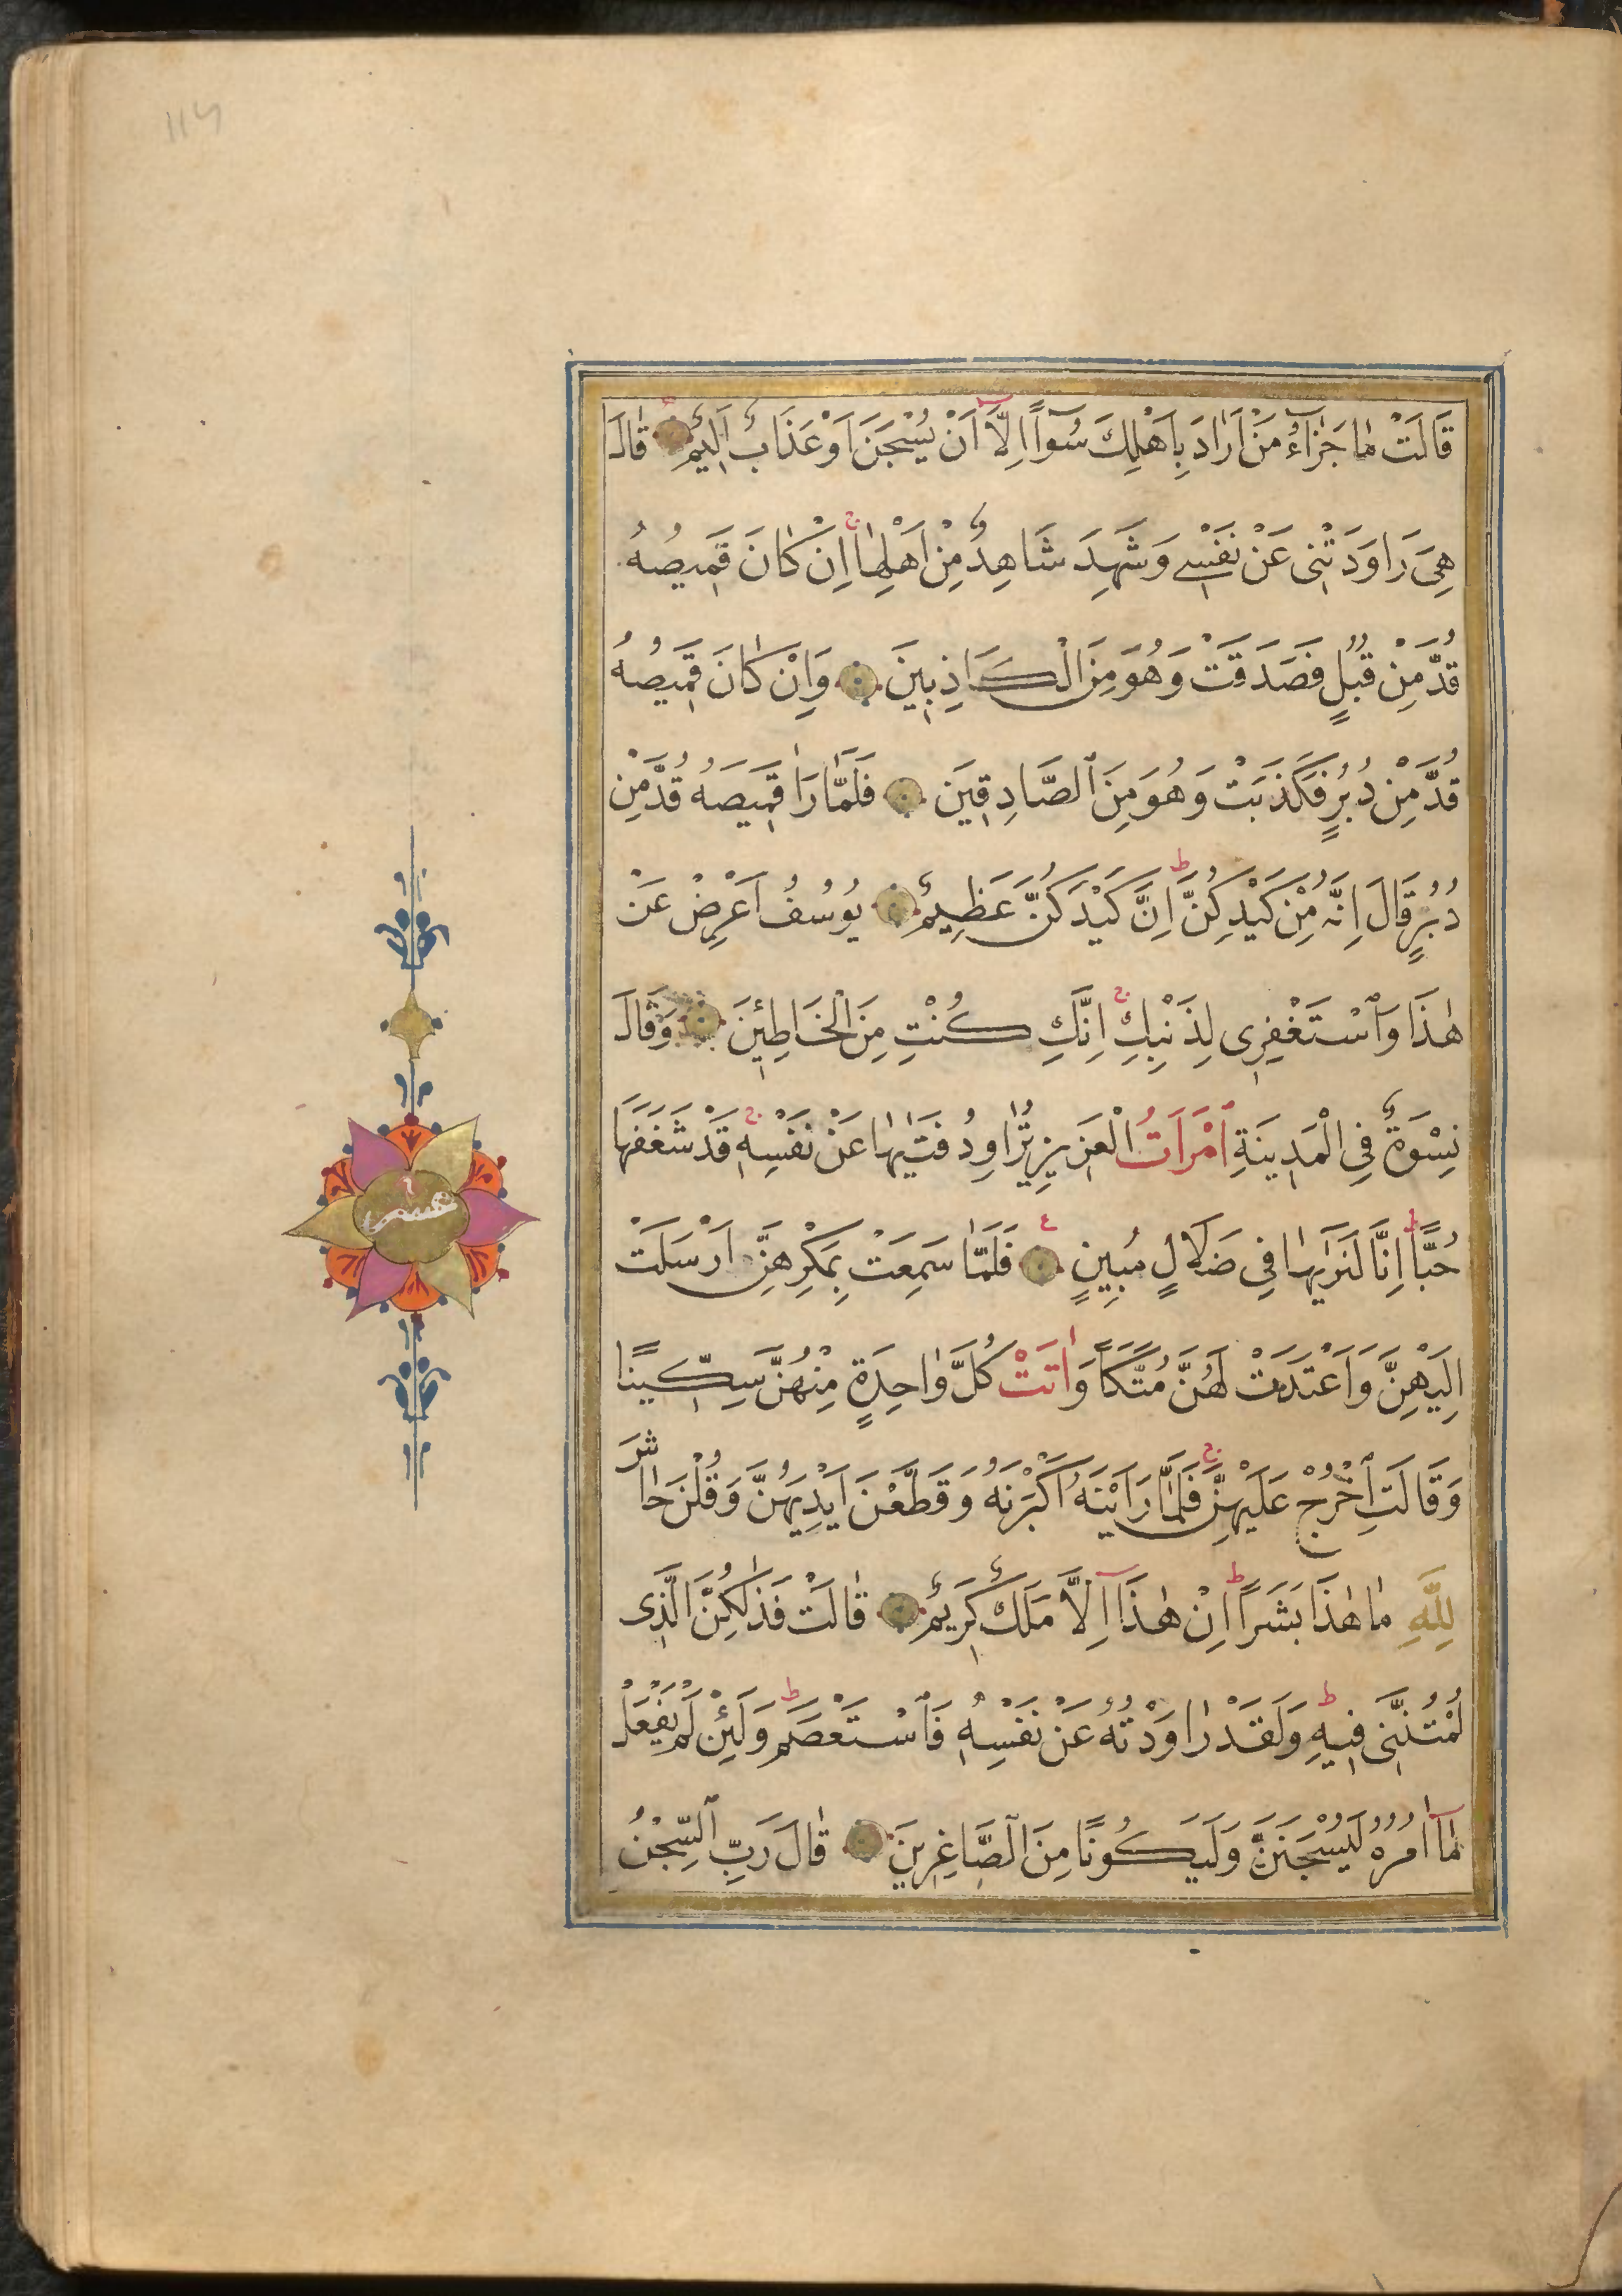 قَالَتْ مٰا جَزٰٓاءُ مَنْ اَرٰادَ بِاَهْلِكَ سُٓوءًا اِلَّٓا اَنْ يُسْجَنَ اَوْ عَذَابٌ اَلِيمٌ قٰالَ
هِيَ رَاوَدَتْنِى عَنْ نَفْسِى وَشَهِدَ شَاهِدٌ مِنْ اَهْلِهٰا ج اِنْ كٰانَ قَمِيصُهُ
قُدَّ مِنْ قُبُلٍ فَصَدَقَتْ وَهُوَ مِنَ الْكَاذِبِينَ وَاِنْ كٰانَ قَمِيصُهُ
قُدَّ مِنْ دُبُرٍ فَكَذَبَتْ وَهُوَ مِنَ الصَّادِقِينَ فَلَمّٰا رَاٰ قَمِيصَهُ قُدَّ مِنْ
دُبُرٍ قَالَ اِنَّهُ مِنْ كَيْدِكُنَّ ط اِنَّ كَيْدَكُنَّ عَظِيمٌ يُوسُفُ اَعْرِضْ عَنْ
هٰذَا وَاسْتَغْفِرِى لِذَنْبِكِ ج اِنَّكِ كُنْتِ مِنَ الْخَاطِئِينَ وَقَالَ
نِسْوَةٌ فِى الْمَدِينَةِ امْرَاَتُ الْعَزِيزِ تُرٰاوِدُ فَتٰيهٰا عَنْ نَفْسِهِ ج قَدْ شَغَفَهَا
حُبًّا ط اِنَّا لَنَرٰيهٰا فِى ضَلَالٍ مُبِينٍ ع فَلَمّٰا سَمِعَتْ بِمَكْرِهِنَّ اَرْسَلَتْ
اِلَيْهِنَّ وَاَعْتَدَتْ لَهُنَّ مُتَّكَاً وَاٰتَتْ كُلَّ وٰاحِدَةٍ مِنْهُنَّ سِكِّينًا
وَقَالَتِ اخْرُجْ عَلَيْهِنَّ ج فَلَمّٰا رَاَيْنَهُ اَكْبَرْنَهُ وَقَطَّعْنَ اَيْدِيَهُنَّ وَقُلْنَ حٰاشَ
لِلّٰهِ مٰا هٰذَا بَشَرًا ط اِنْ هٰذَٓا اِلَّا مَلَكٌ كَرِيمٌ قٰالَتْ فَذٰلِكُنَّ الَّذِى
لُمْتُنَّنِى فِيهِ ط وَلَقَدْ رٰاوَدْتُهُ عَنْ نَفْسِهِ فَاسْتَعْصَمَ ط وَلَئِنْ لَمْ يَفْعَلْ
مَٓا اٰمُرُهُ لَيُسْجَنَنَّ وَلَيَكُونًا مِنَ الصَّاغِرِينَ قٰالَ رَبِّ السِّجْنُ